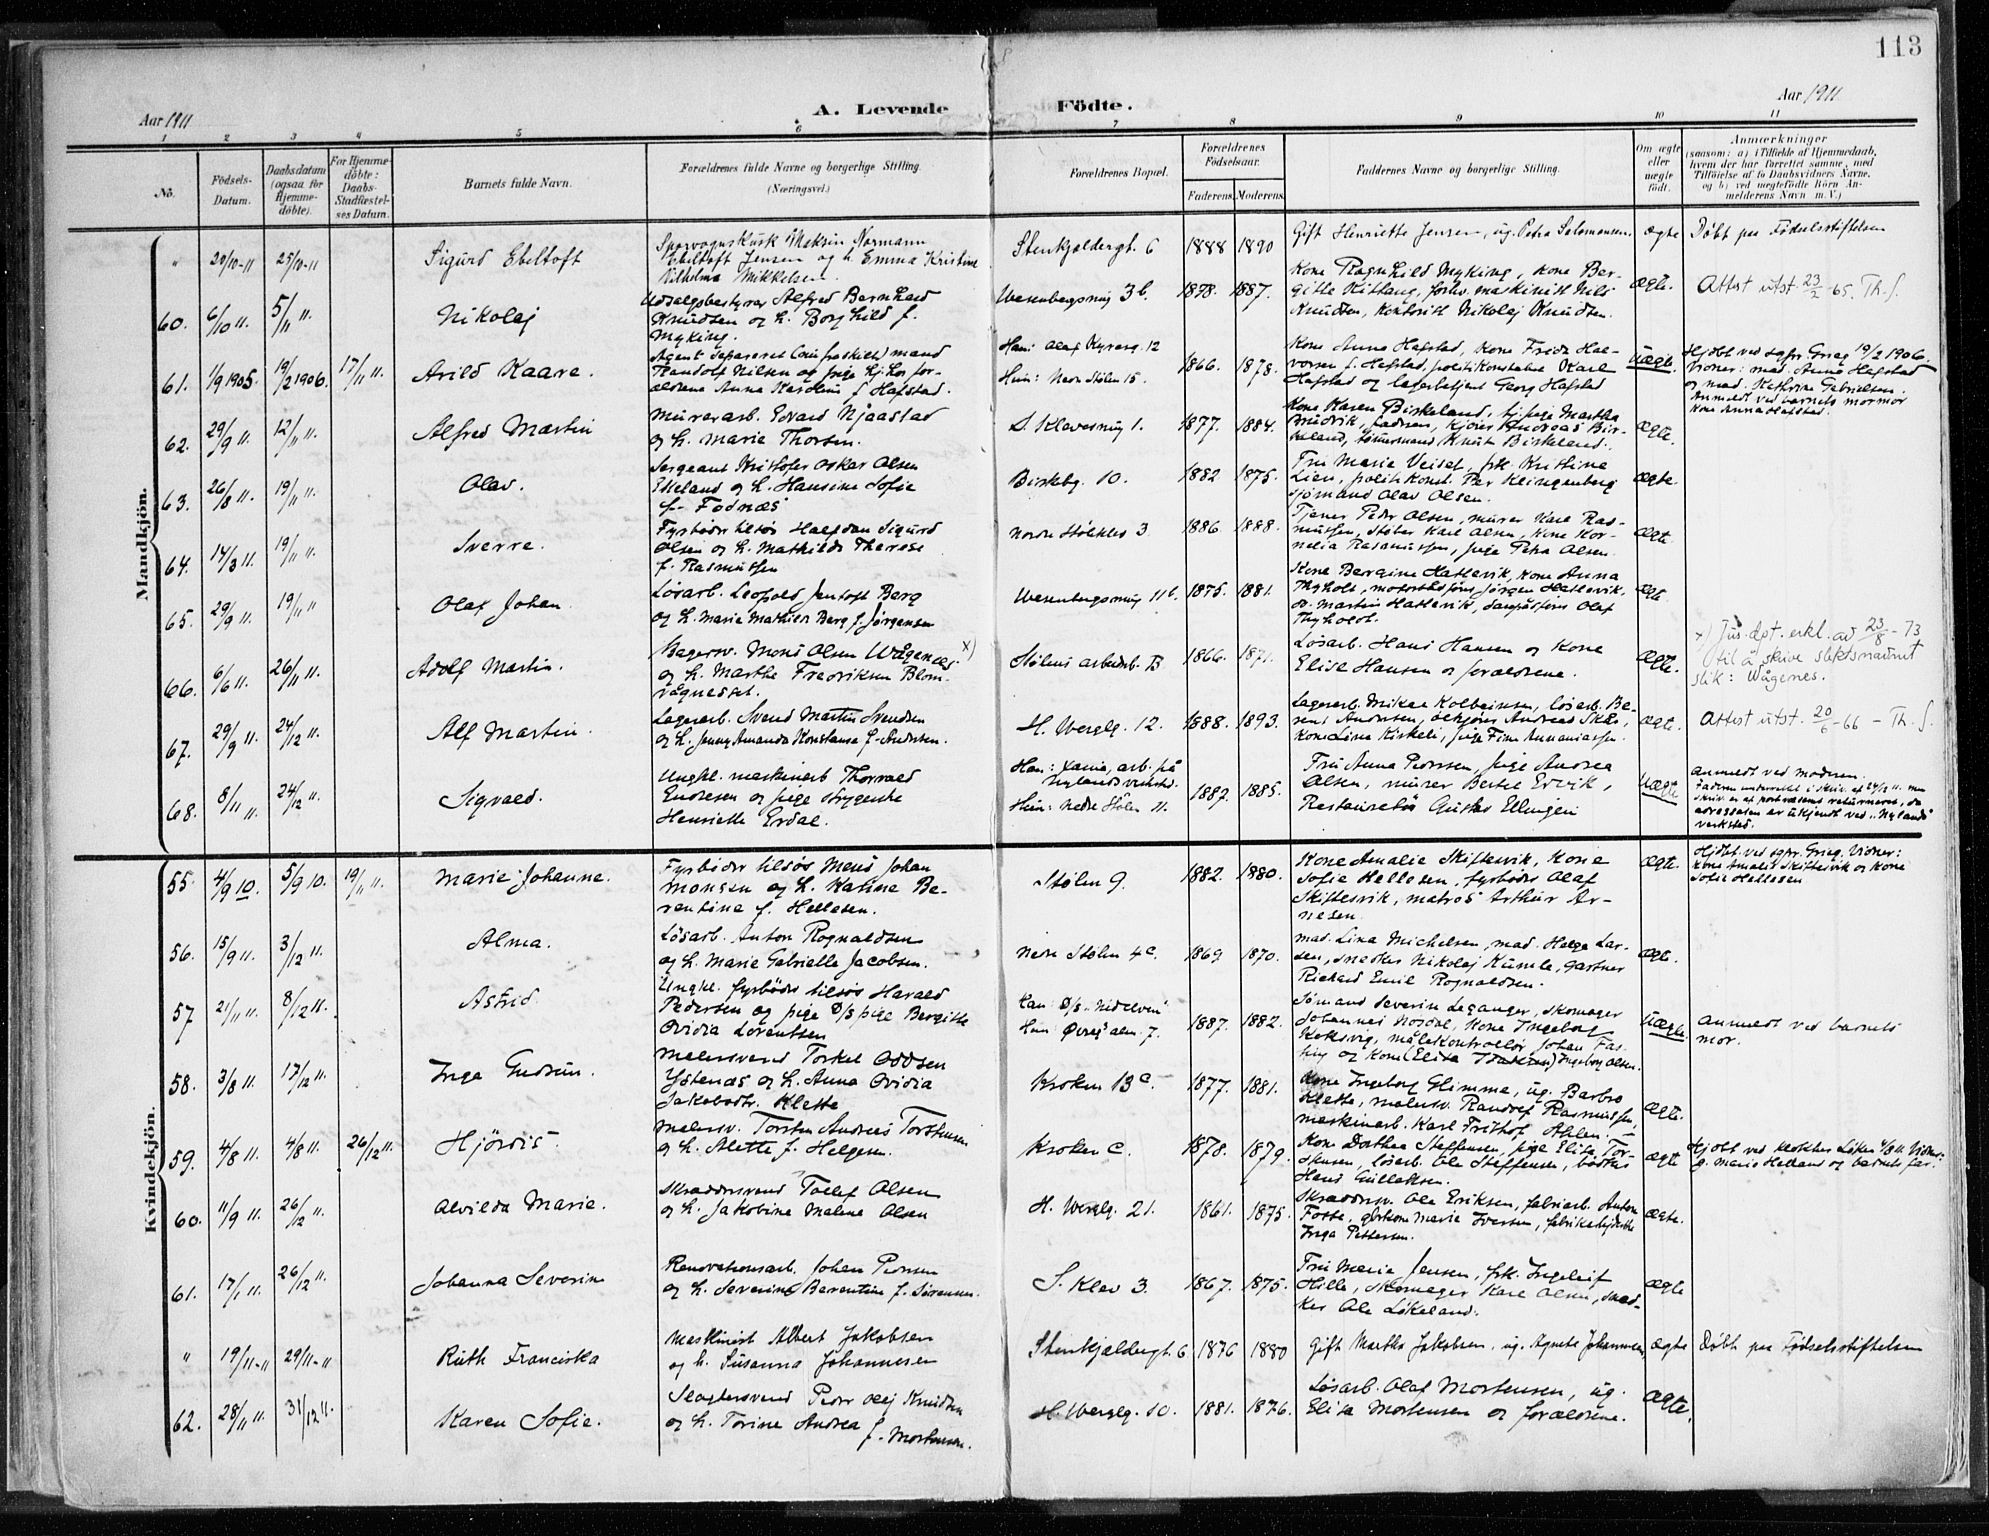 113
Aar 1911
A. Levende Födte.
Aar 1911
1 2 3 4 5 6 7 8 9 10 11
No.
Födsels-Datum.
Daabsdatum (ogsaa for Hjemme-döbte).
For Hjemme-döbte: Daabs-Stadfæstel-ses Datum.
Barnets fulde Navn.
Forældrenes fulde Navne og borgerlige Stilling. (Næringsvei.)
Forældrenes Bopæl.
Forældrenes Födselsaar.
Faderens. Moderens.
Faddernes Navne og borgerlige Stilling.
Om ægte eller uægte födt.
Anmærkninger
(saasom: a) i Tilfælde af Hjemmedaab, hvem der har forrettet samme, med Tilföielse af to Daabsvidners Navne, og b) ved uægtefödte Börn An-melderens Navn m. V.)
Mandkjön.
" 20/10-11 25/10-11 Sigurd Ebeltoft
Sporvognskusk Maksin Normann
Ebeltoft Jensen og h. Emma Kristine
Vilhelma Mikkelsen
Stenkjeldergt. 6 1888 1890
Gift Henriette Jensen, ug. Petra Salomonsen. ægte
Döbt paa Födselsstiftelsen
60. 6/10 11. 5/11 11. Nikolaj
Udsalgsbestyrer Alfred Bernhard
Knudsen og h. Borghild f.
Myking.
Wesenbergsmug 3b. 1887.
Kone Ragnhild Myking, Kone Ber-
gitte Kittang, forhv. maskinist Nils
Knudsen, Kontorist Nikolaj Knudsen.
ægte. Attest utst. 23/2-65. Th. S.
61. 1/9 1905. 19/2 1906. 17/11 11. Arild Kaare.
Agent separeret (ein fraskilt) mand
Randolf Nilsen og pige hj. hos for-
ældrene Anna Karoline f Hafstad.
Han: Olaf Kyresg. 12
Hun: Nedre Stölen 15. 1866. 1878.
Kone Anna Hafstad, Kone Frida Hal-
vorsen f. Hafstad, politikonstabel Karl
Hafstad og lagerbetjent Georg Hafstad
Uægte.
Hjdöbt ved sgpr. Grieg 19/2 1906.
Vidner: mad. Anna Hafstad
og mad. Kathrine Gabrielsen.
Anmeldt ved barnets mormor
Kone Anna Hafstad.
62. 29/9 11. 12/11 11. Alfred Martin
Murerarb. Edvard Njaastad
og h. Marie Thorsen.
S. Klevesmug 1. 1877. 1884.
Kone Karen Birkeland, tj. pige Martha
Brudvik, faderen, kjörer Andreas Bir-
keland, tömmermand Knut Birkeland.
ægte.
63. 26/8 11. 19/11 11. Olav.
Sergeant Kristofer Oskar Olsen
Ekeland og h. Hansine Sofie
f. Fodnæs
Birkebg. 10. 1882 1875.
Fru Marie Veiset, frk. Kristine
Lien, politikonst. Per Klingenberg
sjömand Olav Olsen.
ægte.
64. 14/3 11. 19/11 11. Sverre.
Fyrböder tilsös Halfdan Sigurd
Olsen og h. Mathilde Therese
f. Rasmussen
Nordre Stölekleo 3 1886 1888.
Tjener Peder Olsen, murer Karl Ras-
mussen, Stöber Karl Olsen, Kone Kor-
nelia Rasmussen, pige Petra Olsen.
ægte.
65. 29/9 11. 19/11 11 Olaf Johan
Lösarb. Leopold Jentoft Berg
og h. Marie Mathilde Berg f. Jörgensen
Wesenbergsmug 11b. 1875. 1881.
Kone Bergine Hatlevik, Kone Anna
Thyholt, motorbådförer Jörgen Hatlevik,
do. Martin Hatlevik, dampbåtförer Olaf
Thyholdt.
ægte
66. 6/6 11. 26/11 11. Adolf Martin.
Bagersv. Mons Olsen Wågenæs x)
og h. Marthe Fredriksen Blom-
vågnesset.
Stölens arbeiderb. B 1866. 1871.
Lösarb. Hans Hansen og Kone
Elise Hansen og forældrene.
ægte.
x) Jus. dpt. erkl. av 23/8-73
til å skrive slektsnavnet
slik: Wågenes.
67. 29/9 11. 24/12 11. Alf Martin.
Lagerarb. Svend Martin Svendsen
og h. Jenny Amanda Konstanse f. Andersen.
H. Wergelg. 12. 1888. 1893.
Lagerarb. Mikal Kolbeinsen, lösarb. Be-
rent Andersen, Andreas Skår,
Kone Lina Kirkeli, pige Fina Annaniassen.
ægte. Attest utst. 20/6-66 - Th. S.
68. 8/11 11. 24/12 11. Sigvald.
Ungkl. maskinarb Thorvald
Endresen og pige strygerske
Henriette Erdal.
Han: Xania, arb. på
Nylands verksted.
Hun: Nedre Stölen 11. 1887. 1885.
Fru Anna Pedersen, pige Andrea
Olsen, murer Bertel Ervik,
Restauratör Gustav Ellingsen
Uægte
Anmeldt ved moderen.
Faderen underrettet i skriv. af 29/12 11. men
skriv. er af postvæsenet returneret, da
adressaten er ukjendt ved "Nylands
verksted.
Kvindekjön.
55. 4/9 10. 5/9 10. 19/11 11. Marie Johanne.
Fyrböder tilsös Mons Johan
Monsen og h. Katine Be-
rentine f. Hellesen.
Stölen 9. 1882. 1880.
Kone Amalie Skiftesvik, Kone
Sofie Hellesen, fyrböder Olaf
Skiftesvik, matros Arthur Ar-
nesen.
ægte.
Hjdöbt ved sgpr. Grieg. Vidner:
Kone Amalie Skiftesvik og Kone
Sofie Hellesen
56. 15/9 11. 3/12 11. Alma.
Lösarb. Anton Rognaldsen
og h. Marie Gabrielle Jacobsen.
Nedre Stölen 4c. 1869 1870.
Mad. Lina Michelsen, mad. Helga Lar-
sen, snedker Nikolaj Kumle, gartner
Richard Emil Rognaldsen.
ægte.
57 21/11 11. 8/12 11. Astrid
Ungkl. fyrböder tilsös Harald
Pedersen og pige D/S pige Bergitte
Ovidia Lorentsen
Han: D/S "Nidelven"
Hun: Övreg. alm. 7. 1887. 1882.
Sömand Severin Leganger, skomager
Johannes Nordal, Kone Ingeborg
Keksvig, målekontrollör Johan Fas-
ting og Kone Ingeborg Olsen.
Uægte.
Anmeldt ved barnets
mor.
58. 3/8 11. 17/12 11. Inga Gudrun.
Malersvend Torkel Oddsen
Ystenæs og h. Anna Ovidia
Jakobsdtr. Klette
Kroken 13c. 1877. 1881.
Kone Ingeborg Glimme, ug. Barbro
Klette, malersv. Randolf Rasmussen,
maskinarb. Karl Frithof Ahlen.
ægte.
59. 4/8 11. 4/8 11. 26/12 11. Hjördis.
Malersv. Torsten Andreas Torstensen
og h. Alette f. Helgesen.
Kroken C. 1878. 1879.
Kone Dorthea Steffensen, pige Elisa Tor-
stensen, lösarb. Ole Steffensen, bödker
Hans Gulleksen.
ægte
Hjdöbt ved klokker Löken 4/8 11. Vidner:
g. Marie Helland og barnets far.
60. 11/9 11. 26/12 11. Alvilda Marie.
Skræddersvend Tollef Olsen
og h. Jakobine Malene Olsen
H. Wergelg. 21. 1861. 1875.
Skræddersv. Ole Eriksen, fabrikarb. Anton
Fosse, Marie Iversen, fabrikarbeiderske
Inga Pettersen.
ægte.
61. 17/1 11. 26/12 11. Johanna Severine
Renovationsarb. Johan Pedersen
og h. Severine Berentine f. Sörensen.
S. Klev 3. 1867. 1875.
Fru Maria Jensen, frk. Ingeleif
Hille, skomager Karl Olsen, sned-
ker Ole Lökeland.
ægte
" 19/11-11 29/11-11 Ruth Franciska
Maskinist Albert Jakobsen
og h. Susanna Johannesen
Stenkjeldergt. 6 1876 1880
Gift Martha Jakobsen, ug. Agnete Johannesen, ægte
Döbt paa Födselsstiftelsen
62. 28/11 11. 31/12 11. Karen Sofie.
Slagtersvend Peder Olej Knudsen
og h. Torine Andrea f. Mortensen.
H. Wergelg. 10. 1881. 1876.
Lösarb. Olaf Mortensen, ug.
Elisa Mortensen og forældrene.
ægte.